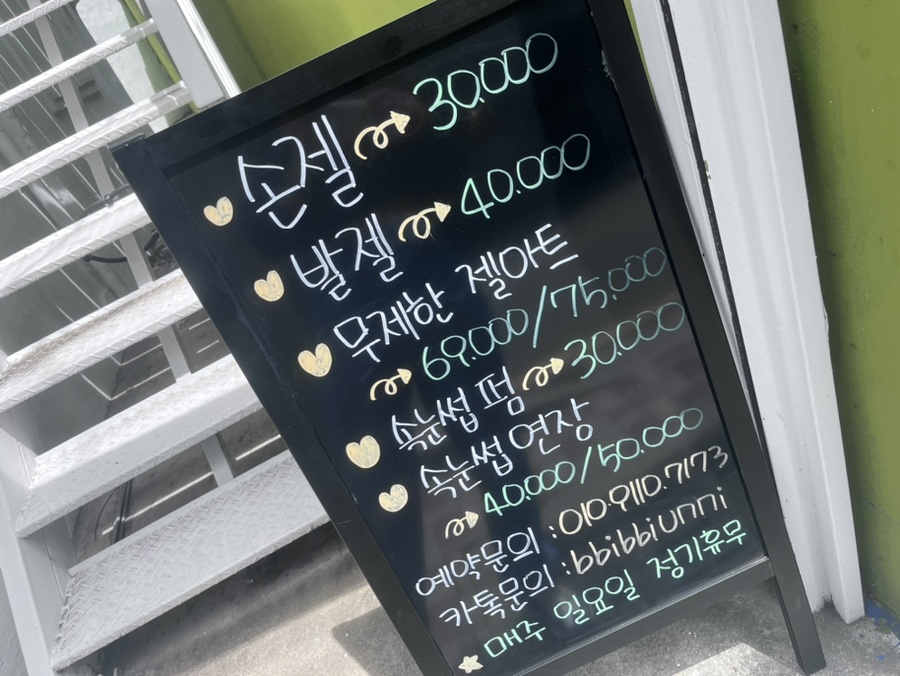 손젤 30.000
발젤 40.000
무제한 젤아트
69.000/75.000
속눈썹 펌 30.000
속눈썹 연장
40.000/50.000
예약문의 :010.9110.7173
카톡문의 :bbibbiunni
매주 일요일 정기휴무